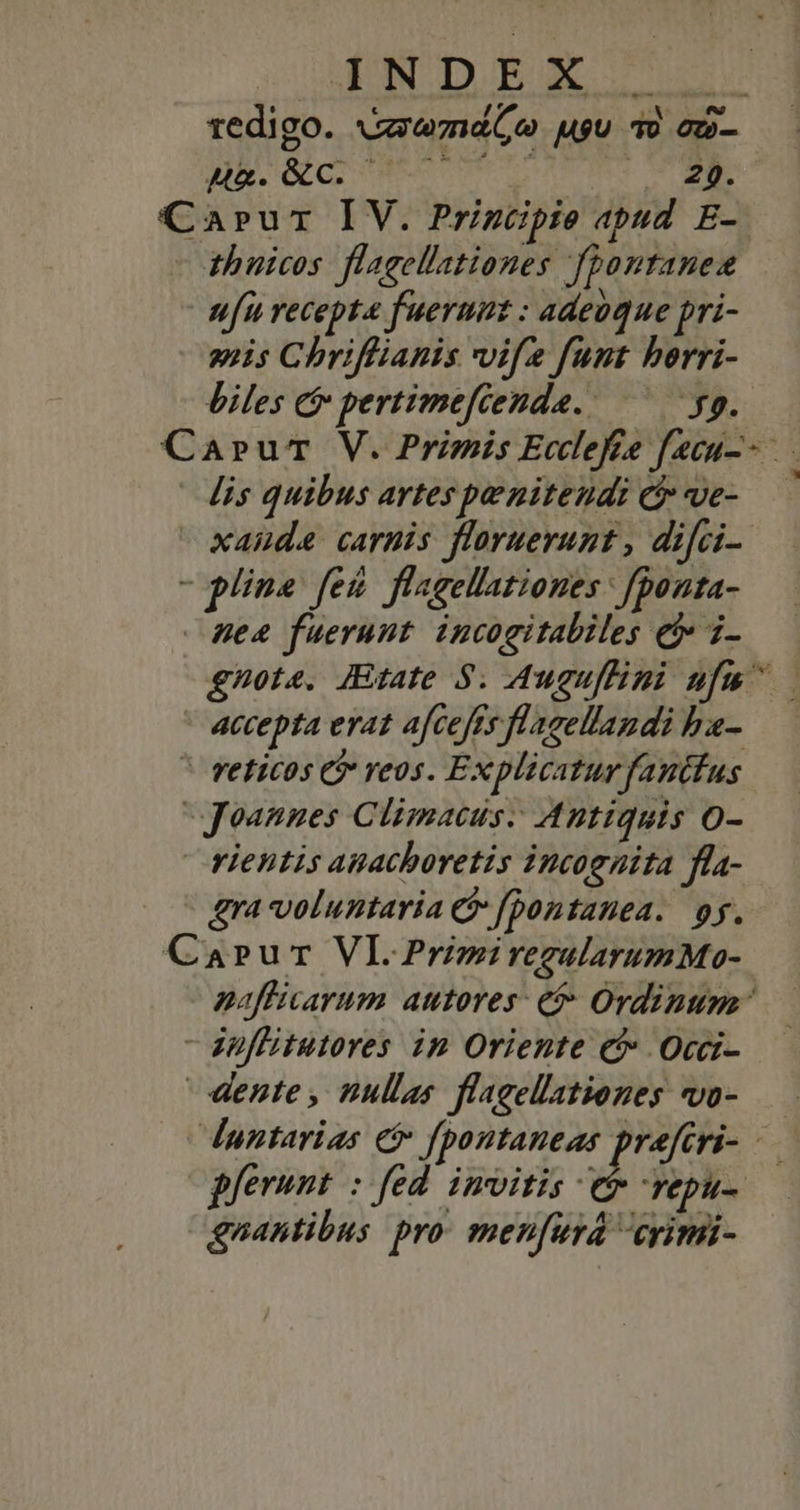 INDEX
redigo. ὑπωπιάζω μου τὸ σῶ-
μα. &c. 29.
CAPUT IV. Principio apud E-
thnicos flagellationes ſpontaneæ
uſu receptæ fuerunt : adeòque pri-
mis Chriſtianis viſæ ſunt horri-
biles & pertimeſcendæ. 59.
CAPUT V. Primis Eccleſiæ ſæcu-
lis quibus artes pænitendi & ve-
xandæ carnis floruerunt, diſci-
plinæ ſeû flagellationes ſponta-
neæ fuerunt incogitabiles & i-
gnotæ. Ætate S. Auguſtini uſu
accepta erat aſceſis flagellandi hæ-
reticos & reos. Explicatur ſanctus
Joannes Climacus. Antiquis O-
rientis anachoretis incognita fla-
gra voluntaria & ſpontanea. 95.
CAPUT VI. Primi regularum Mo-
naſticarum autores & Ordinum
inſtitutores in Oriente & Occi-
dente, nullas flagellationes vo-
luntarias & ſpontaneas præſcri-
pſerunt : ſed invitis & repu-
gnantibus pro menſurâ crimi-